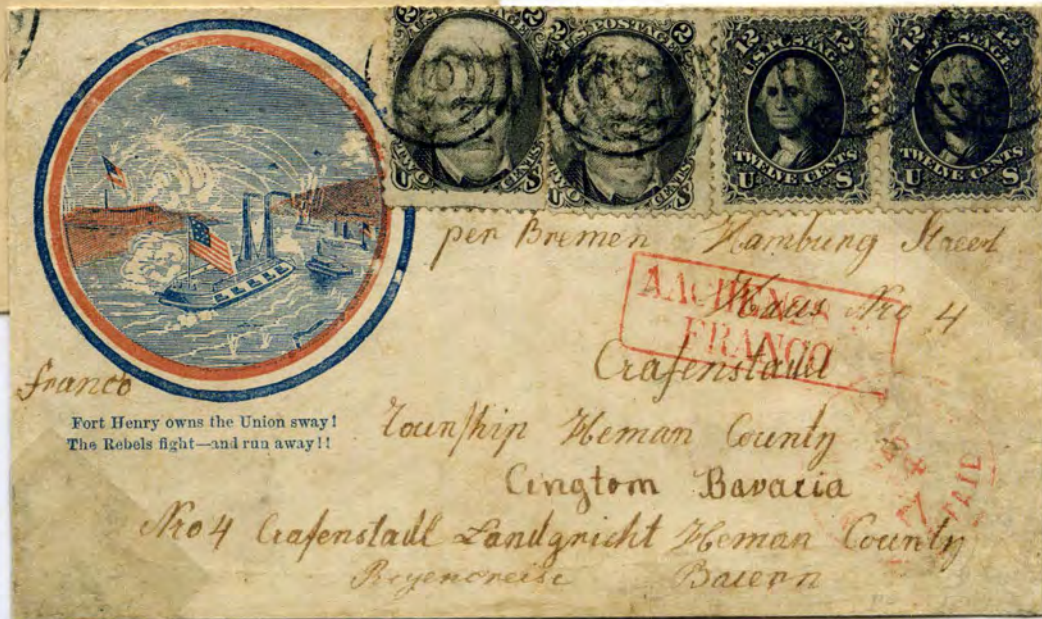 2 U.S. POSTAGE 2
TWO CENTS
U S
2 U.S. POSTAGE 2
TWO CENTS
U S
12 U.S. POSTAGE 12
TWELVE CENTS
U S
12 U.S. POSTAGE 12
TWELVE CENTS
U S
per Bremen Hamburg
AACHEN
FRANCO
Haus Nro 4
Crafenstadl
franco
Fort Henry owns the Union sway!
The Rebels fight—and run away!!
Township Heman County
Cingtom Bavaria
PAID
Nro 4 Crafenstadl Landgricht Heman County
Baiern